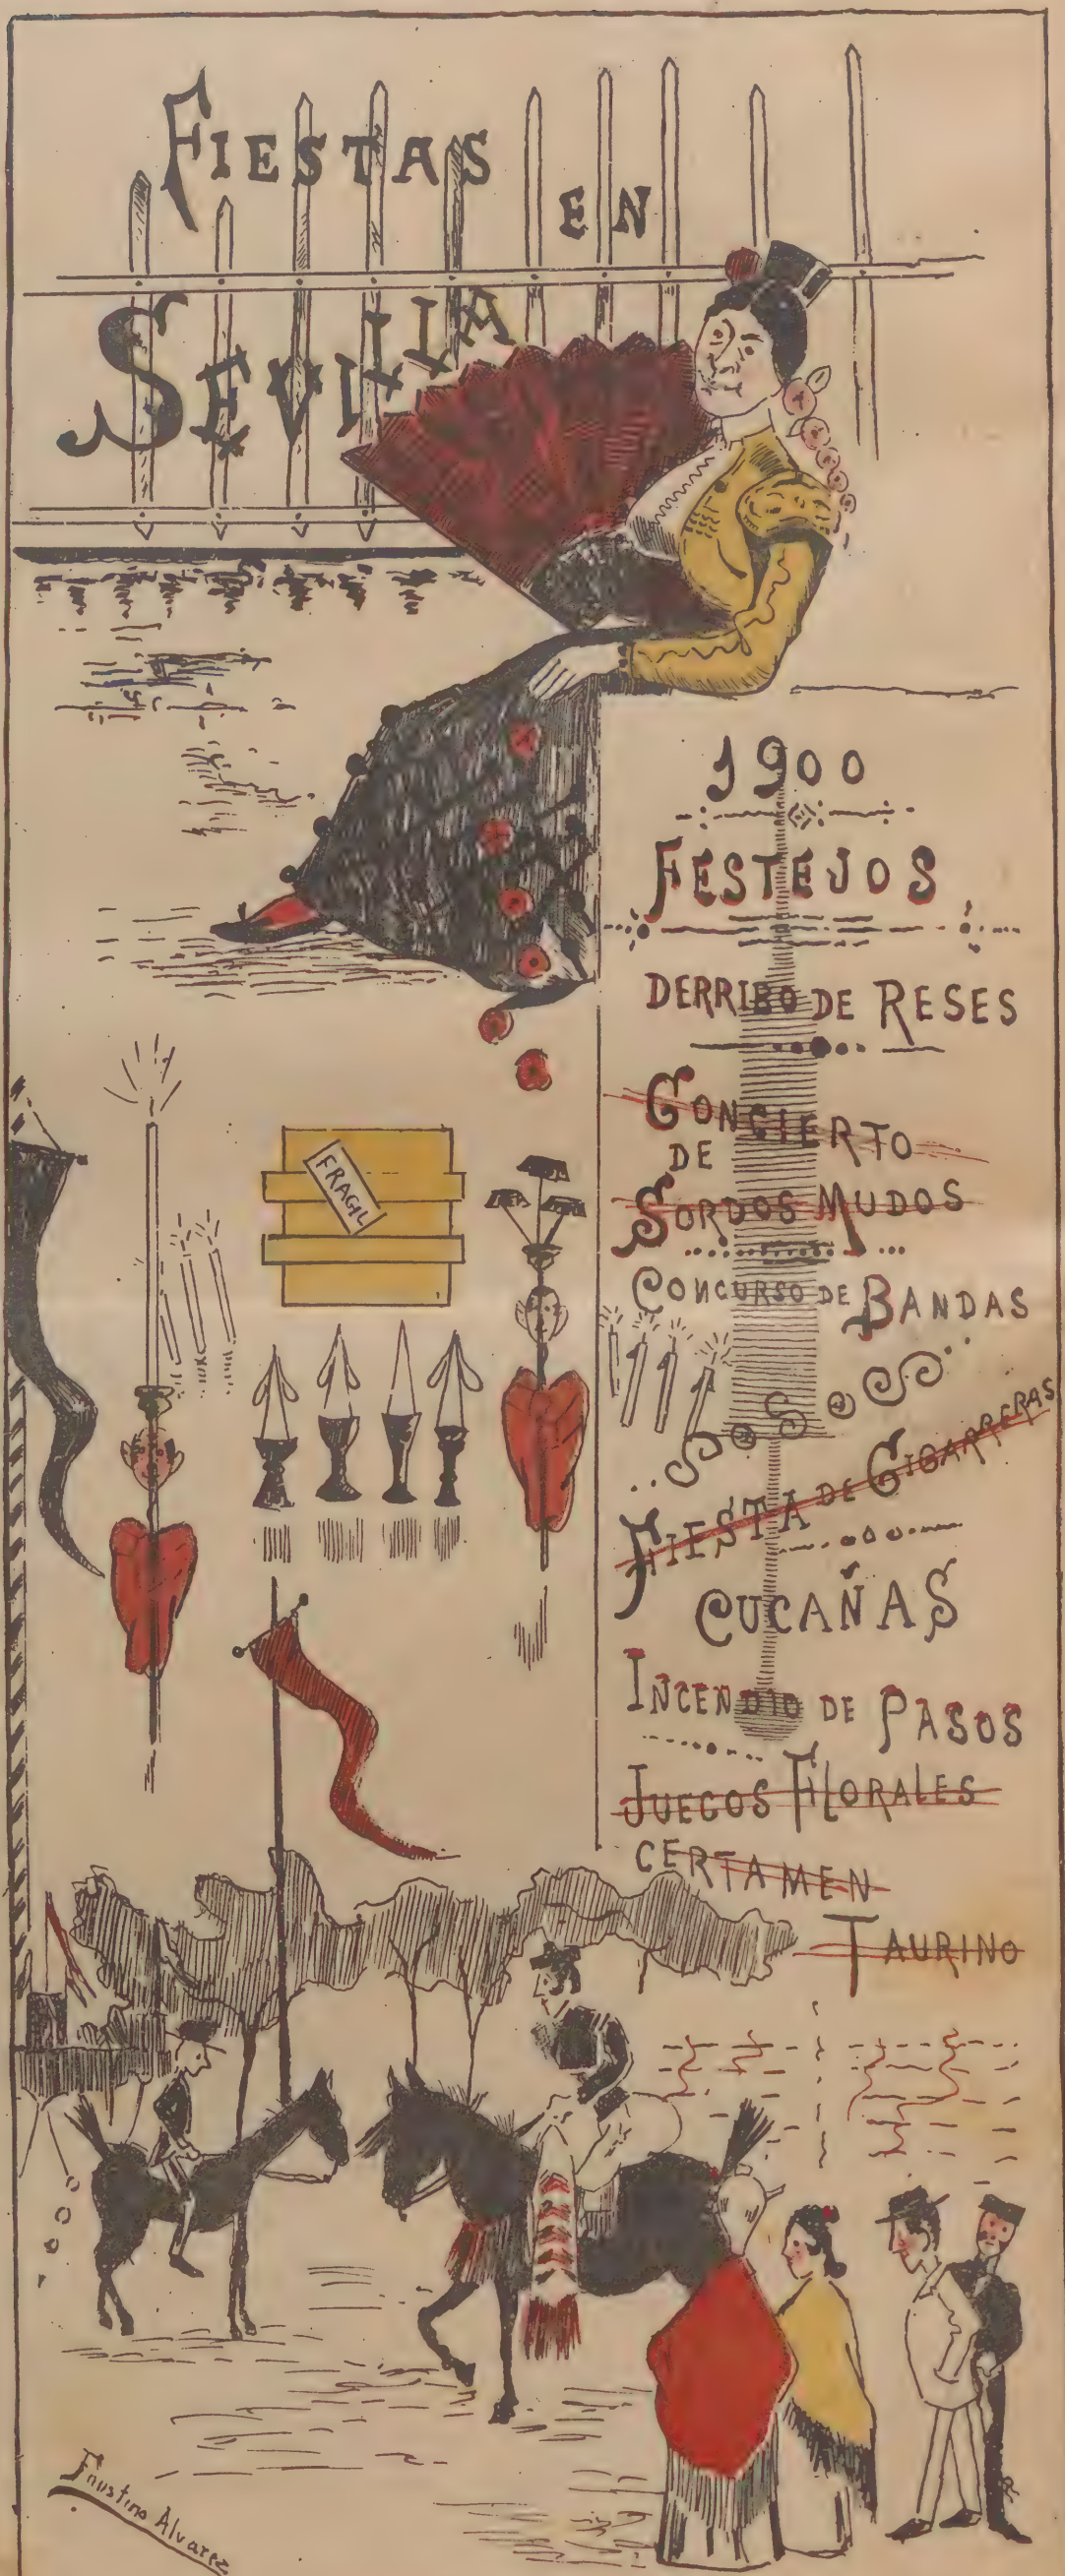 FIESTAS
EN
SEVILLA
1900
FESTEJOS
DERRIBO DE RESES
CONCIERTO
DE
SORDOS MUDOS
CONCURSO DE BANDAS
FIESTA DE CIGARRERAS
CUCAÑAS
INCENDIO DE PASOS
JUEGOS FLORALES
CERTAMEN
TAURINO
FRAGIL
Faustino Alvarez